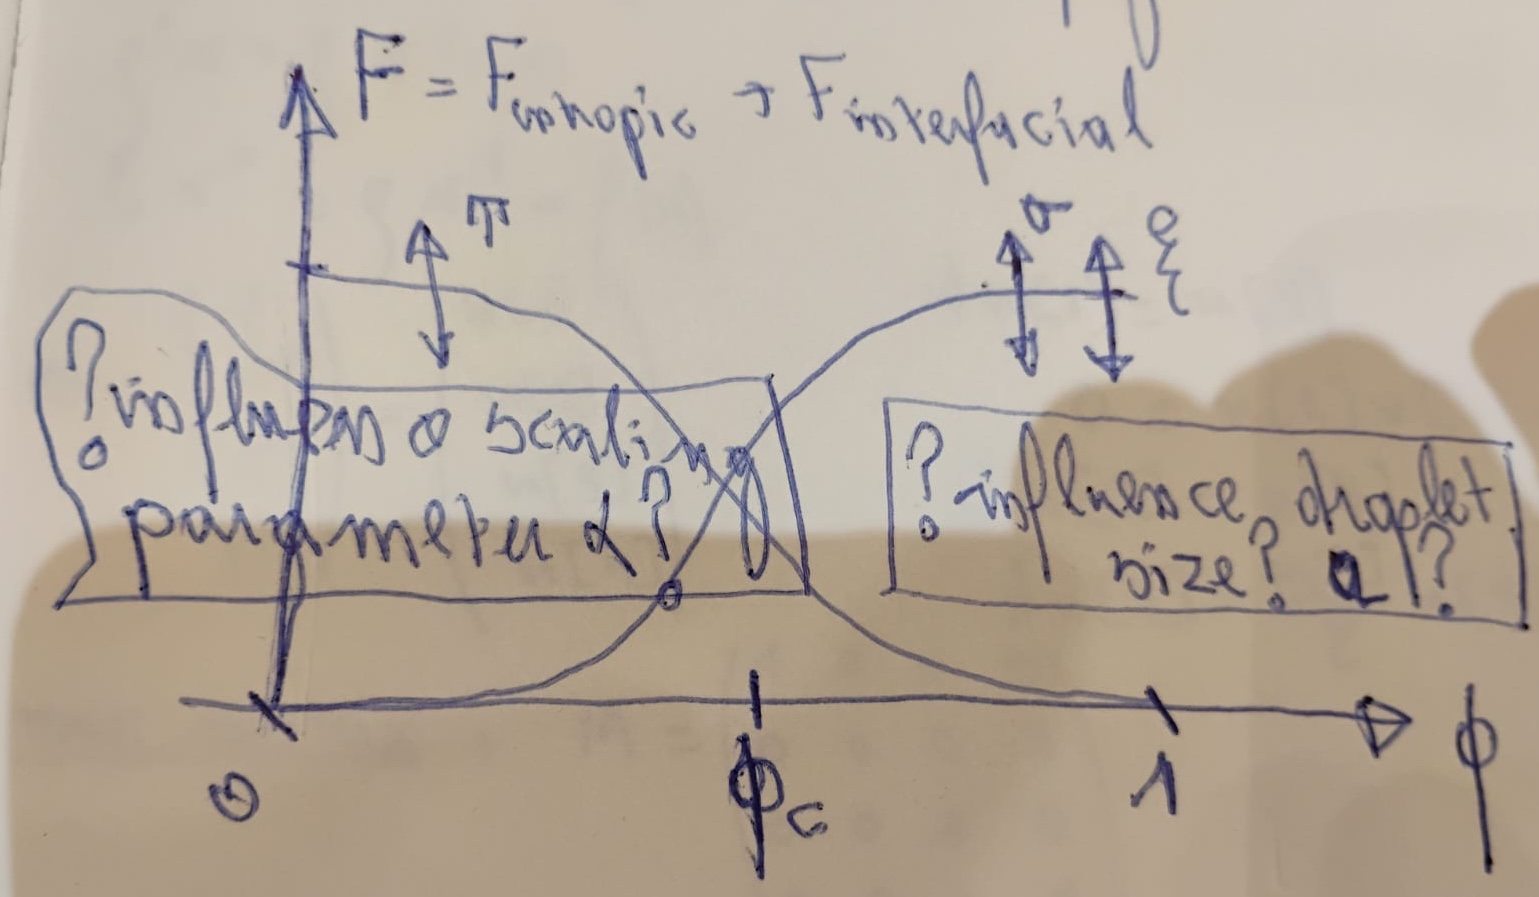 F = Fentropic + Finterfacial
T
σ
ξ
? influen o scaling
parameter α?
? influence droplet
size? a?
0
ϕc
1
ϕ